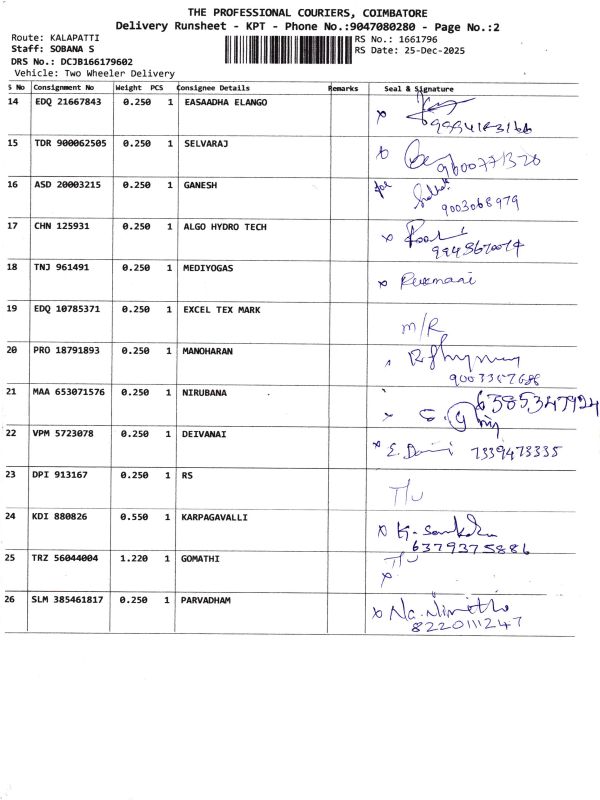 THE PROFESSIONAL COURIERS, COIMBATORE
Delivery Runsheet - KPT - Phone No.:9047080280 - Page No.:2
Route: KALAPATTI
RS No.: 1661796
Staff: SOBANA S
RS Date: 25-Dec-2025
DRS No.: DCJB166179602
Vehicle: Two Wheeler Delivery
S No Consignment No Weight PCS Consignee Details Remarks Seal & Signature
14 EDQ 21667843 0.250 1 EASAADHA ELANGO x
15 TDR 900062505 0.250 1 SELVARAJ
16 ASD 20003215 0.250 1 GANESH for
9003068979
17 CHN 125931 0.250 1 ALGO HYDRO TECH x
18 TNJ 961491 0.250 1 MEDIYOGAS x Rukmani
19 EDQ 10785371 0.250 1 EXCEL TEX MARK
M/R
20 PRO 18791893 0.250 1 MANOHARAN
21 MAA 653071576 0.250 1 NIRUBANA 6385347924
x
22 VPM 5723078 0.250 1 DEIVANAI x E. 7339473335
23 DPI 913167 0.250 1 RS
T/U
24 KDI 880826 0.550 1 KARPAGAVALLI x K.
6379375886
25 TRZ 56044004 1.220 1 GOMATHI T/U
x
26 SLM 385461817 0.250 1 PARVADHAM x Na. Nimitha
8220111247